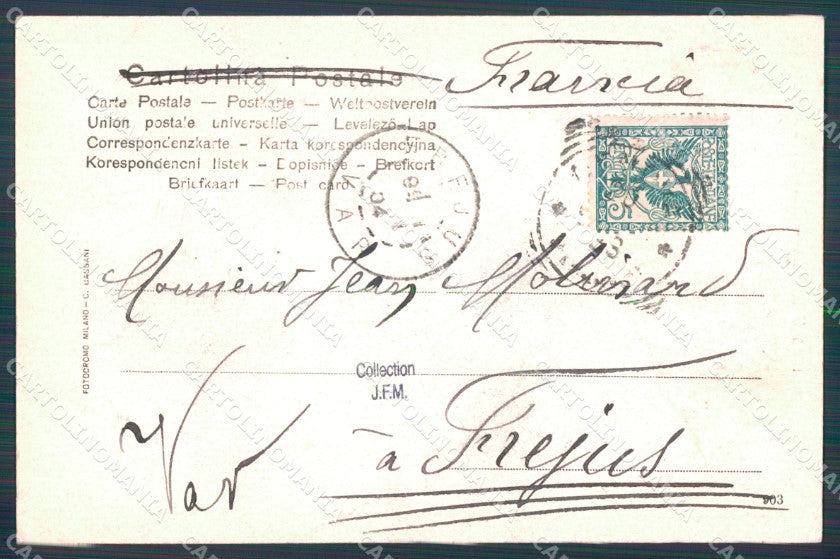 Cartolina Postale
Francia
Carte Postale — Postkarte — Weltpostverein
Union postale universelle — Levelező-Lap
Correspondenzkarte — Karta korespondencyjna
Korespondencni listek — Dopisnice — Brefkort
Briefkaart — Post card
FREJUS
VAR
Monsieur Jean Molinard
Collection
J.F.M.
à Frejus
Var
FOTOCROMO MILANO – C. CASSANI
903
CARTOLINOMANIA